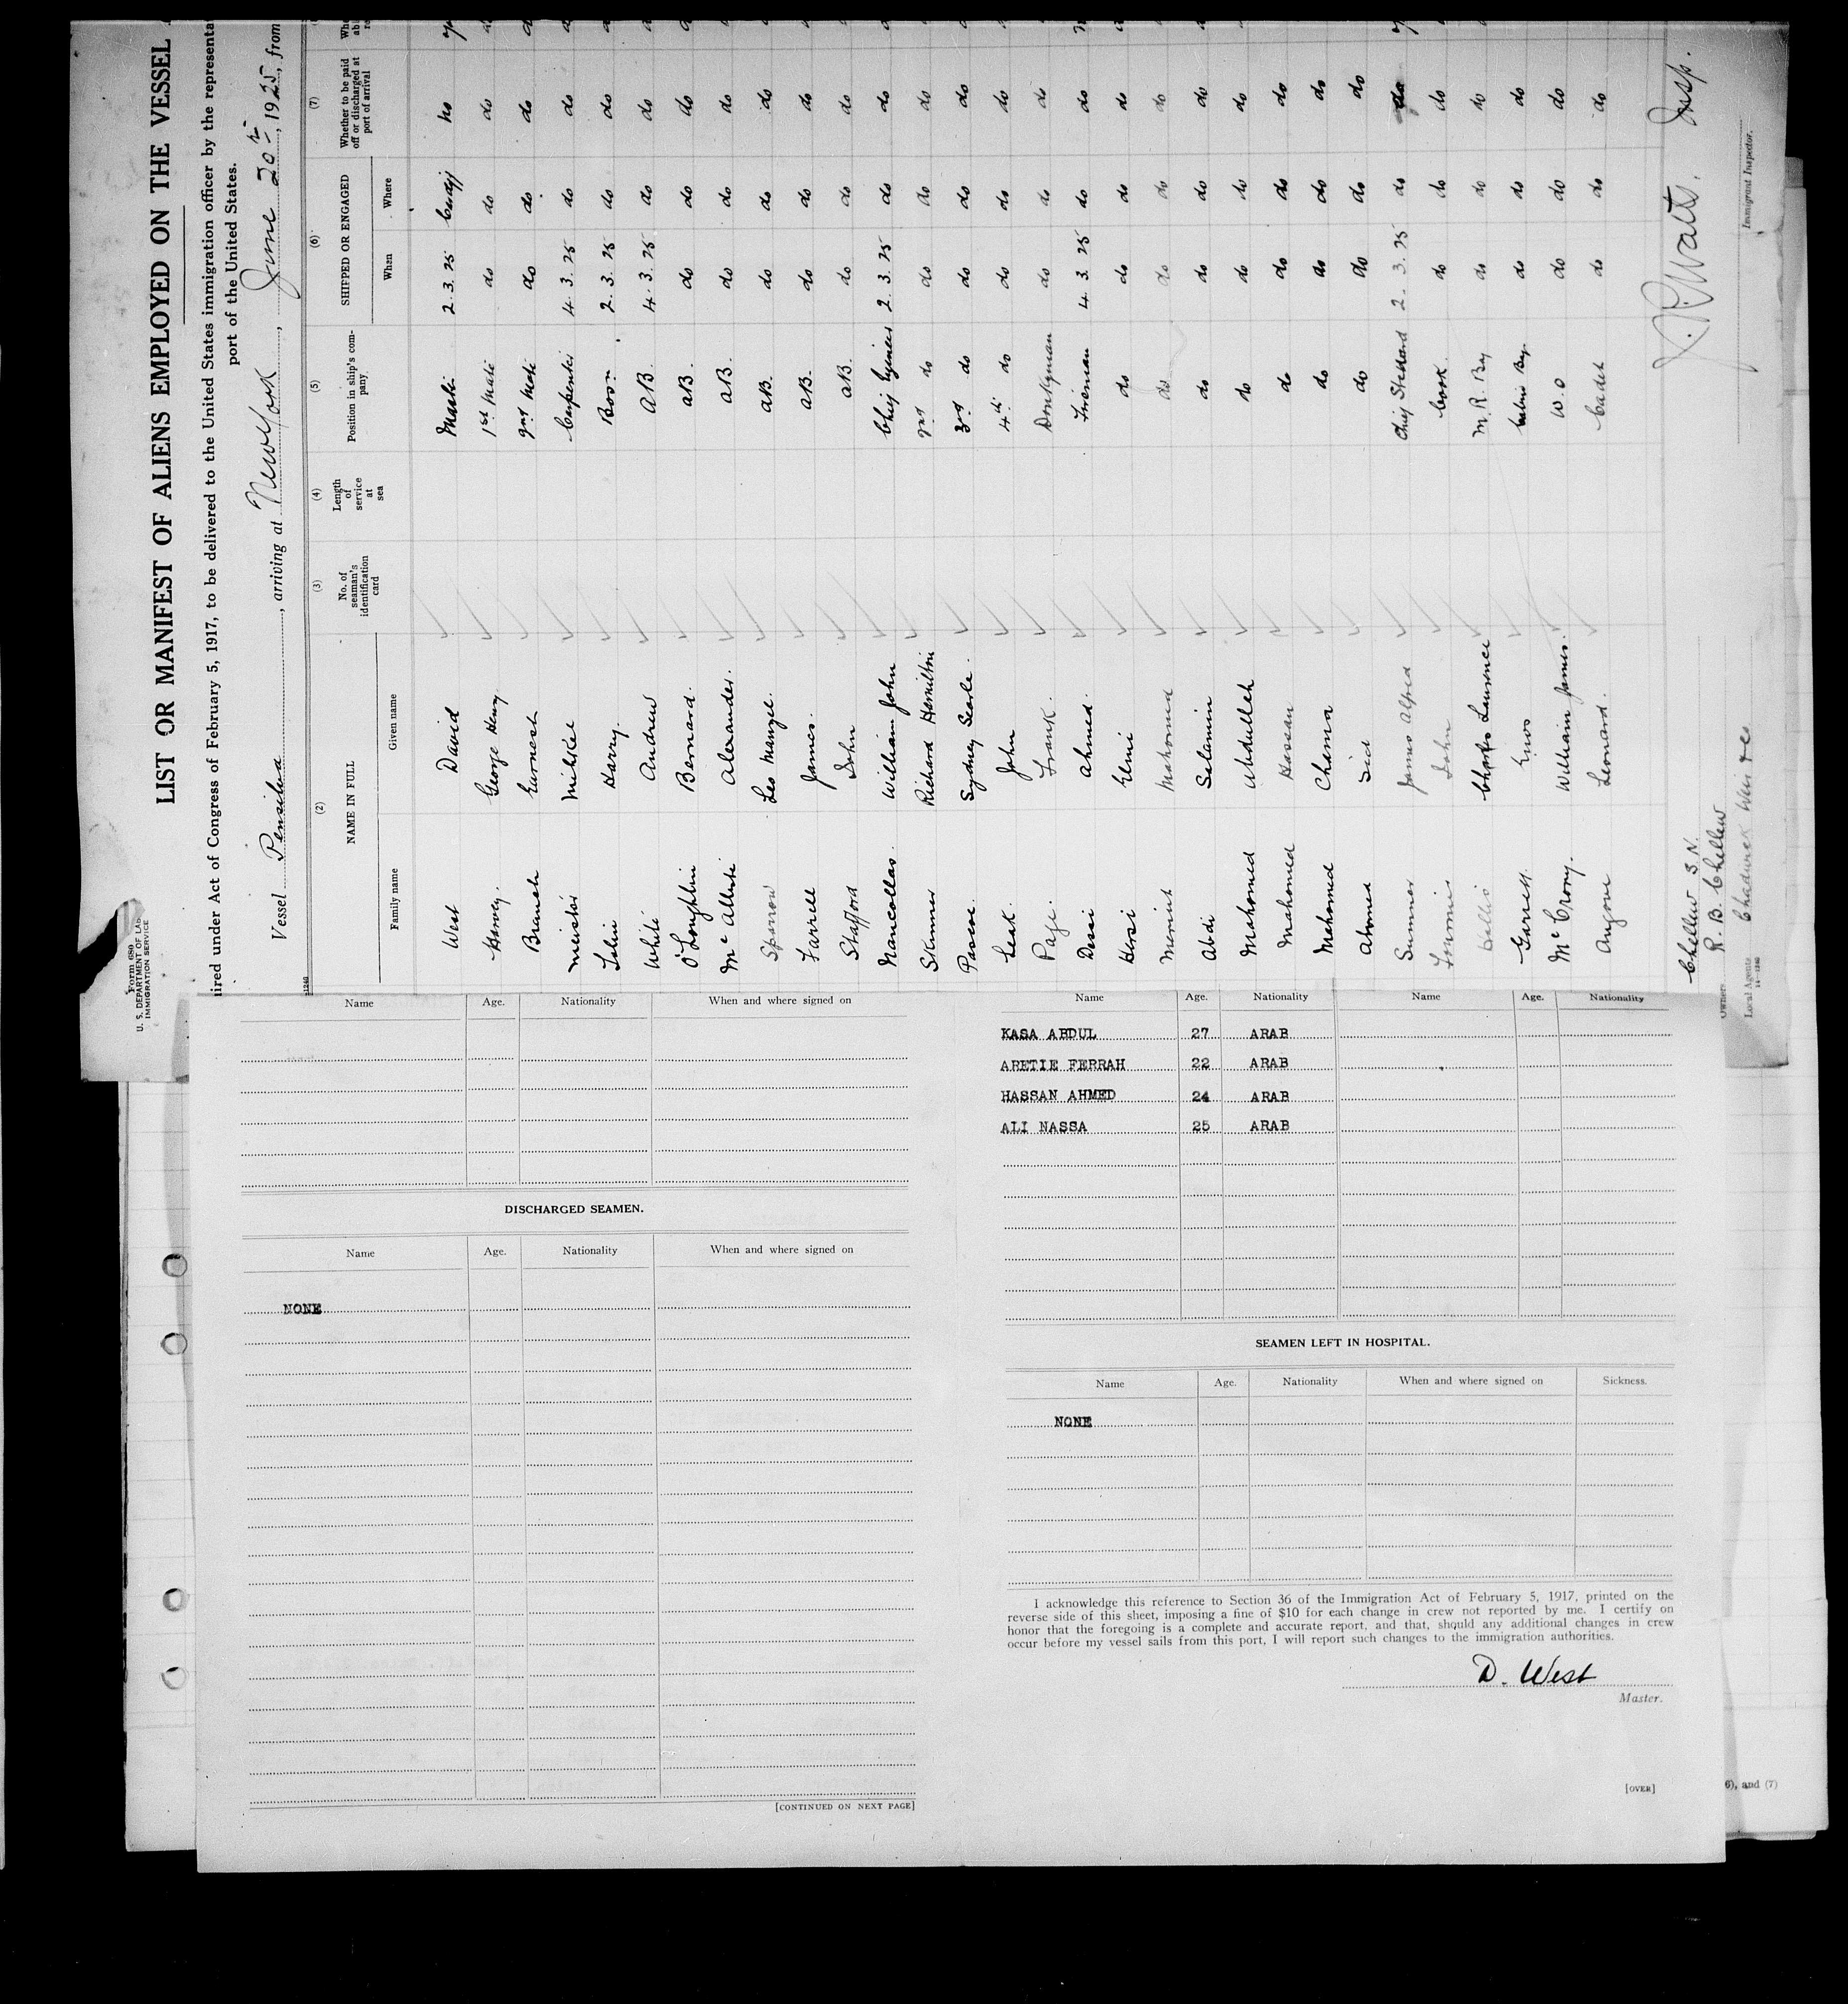 Form 680
U. S. DEPARTMENT OF LAB
IMMIGRATION SERVICE
LIST OR MANIFEST OF ALIENS EMPLOYED ON THE VESSEL
ired under Act of Congress of February 5, 1917, to be delivered to the United States immigration officer by the representa
port of the United States.
Vessel Pensilva, arriving at New York, June 20th, 1925, from
(2) (3) (4) (5) (6) (7)
NAME IN FULL No. of seaman's identification card Length of service at sea Position in ship's company SHIPPED OR ENGAGED Whether to be paid off or discharged at port of arrival
Family name Given name When Where
West David Master 2.3.25 Cardiff no
Harvey. George Henry 1st Mate do do do
Branch Earnest 2nd Mate do do do
Meister Mihkel Carpenter 4.3.25 do do
Harry. Bosn 2.3.25 do do
White Andrew AB 4.3.25 do do
O'Loughlin Bernard. AB. do do do
Mc Alexander. AB. do do do
Sparrow Leo AB. do do do
Farrell James. AB. do do do
Stafford John AB. do do do
Nancollas. William John Chief Engineer 2.3.25 do do
Skinner Richard Hamilton 2nd do do do do
Pascoe. Sydney Searle. 3rd do do do do
Leak. John 4th do do do do
Page. Frank. Donkeyman do do do
Ahmed. Fireman 4.3.25 do do
Hersi Elmi do do do do
Mahomed do do do do
Abdi Salamin do do do do
Mahomed Abdullah do do do do
Mahomed Hassan do do do do
Mahomed Chama do do do do
Ahmed Sid do do do do
Sumner James Alfred Chief Steward 2.3.25 do do
John Cook. do do do
Charles Laurence M.R. Boy do do do
Garrett Enos Cabin Boy. do do do
Mc Crony. William James. W.O do do do
Leonard. Cadet do do do
Chellew S.N.
Owners R. B. Chellew
Local Agents Chadwick
J. R. Watts. Insp.
Immigrant Inspector.
Name Age. Nationality When and where signed on
DISCHARGED SEAMEN.
Name Age. Nationality When and where signed on
NONE
[CONTINUED ON NEXT PAGE]
Name Age. Nationality Name Age. Nationality
KASA ABDUL 27 ARAB
ARETIE FERRAH 22 ARAB
HASSAN AHMED 24 ARAB
ALI NASSA 25 ARAB
SEAMEN LEFT IN HOSPITAL.
Name Age. Nationality When and where signed on Sickness.
NONE
I acknowledge this reference to Section 36 of the Immigration Act of February 5, 1917, printed on the
reverse side of this sheet, imposing a fine of $10 for each change in crew not reported by me. I certify on
honor that the foregoing is a complete and accurate report, and that, should any additional changes in crew
occur before my vessel sails from this port, I will report such changes to the immigration authorities.
D. West
Master.
[OVER]
6), and (7)